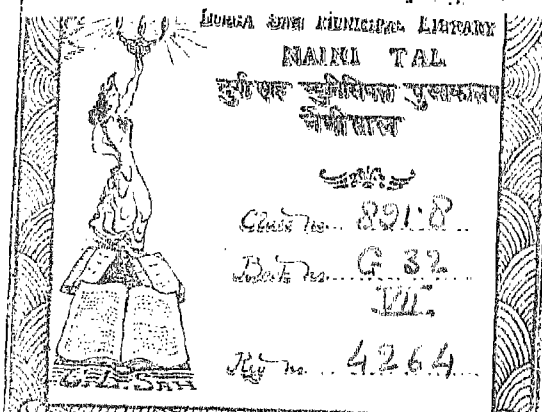 DURGA SAH MUNICIPAL LIBRARY
NAINI TAL
दुर्गा साह म्युनिसिपल पुस्तकालय
नैनी ताल
Class no... 891.8
Book no... G 32
VII
Reg no... 4264
C. L. SAH